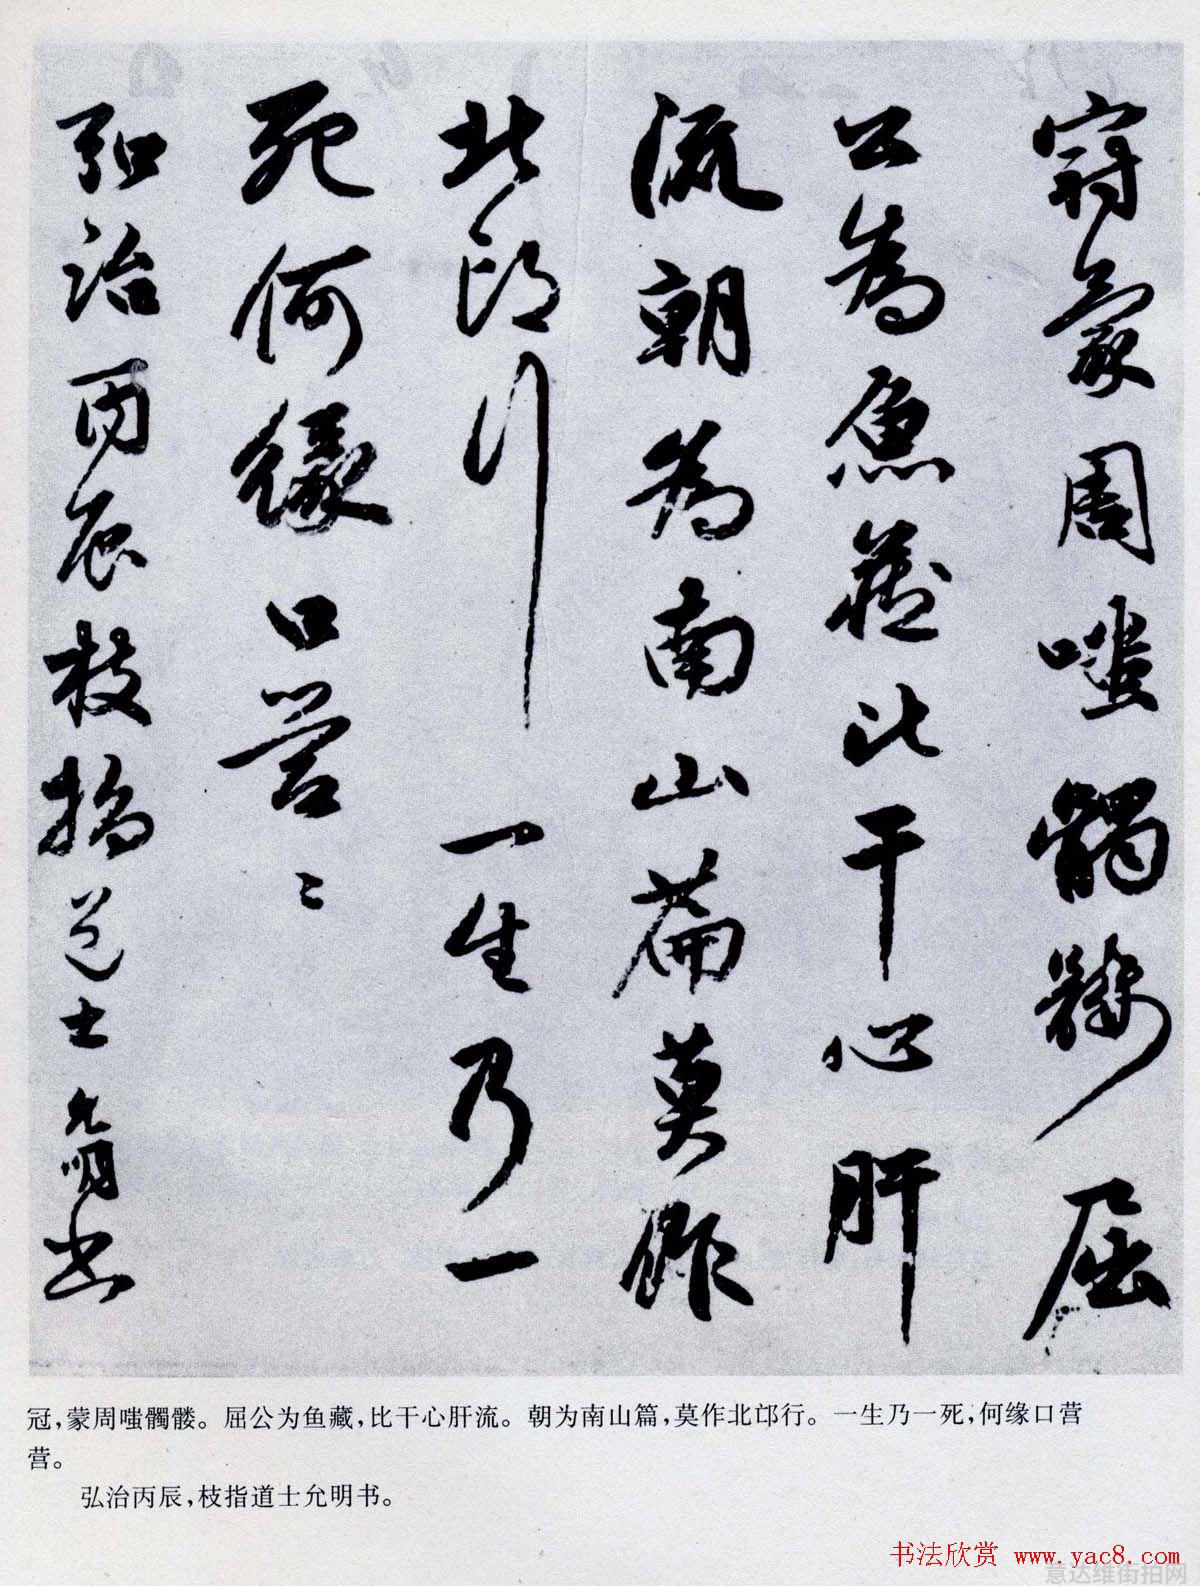 冠蒙周嗤髑髅屈
公為魚藏比干心肝
流朝為南山篇莫作
北邙行一生乃一
死何緣口營〻
弘治丙辰枝指道士允明书
冠，蒙周嗤髑髅。屈公为鱼藏，比干心肝流。朝为南山篇，莫作北邙行。一生乃一死，何缘口营
营。
弘治丙辰，枝指道士允明书。
书法欣赏 www.yac8.com
意达维街拍网